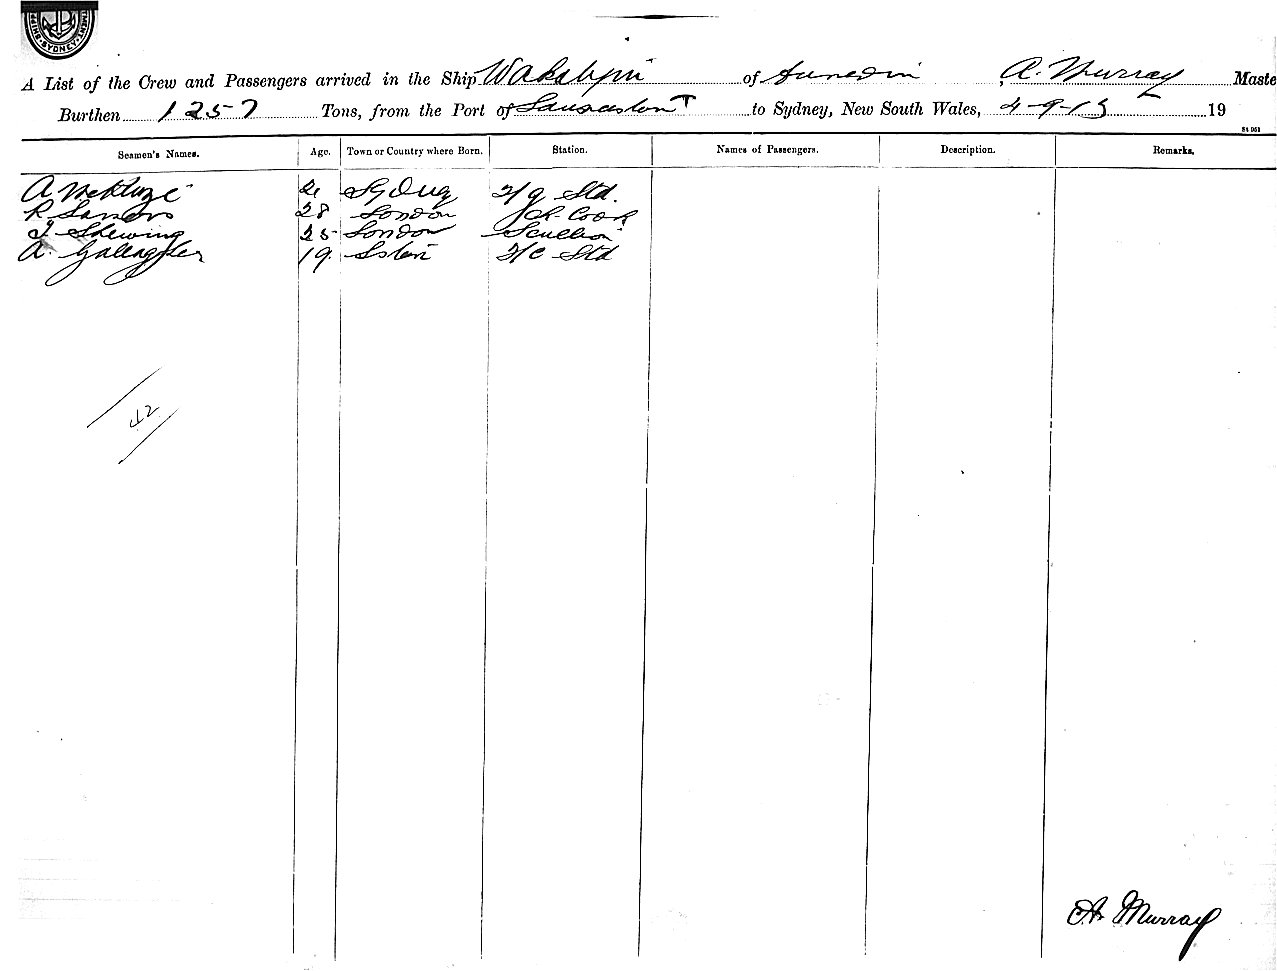 SHIPPING SYDNEY
A List of the Crew and Passengers arrived in the Ship of Dunedin, A. Murray Maste
Burthen 1257 Tons, from the Port of Launceston T to Sydney, New South Wales, 4-9-13 19
Seamen's Names. Age. Town or Country where Born. Station. Names of Passengers. Description. Remarks.
A 2/g Std.
R 28 London Ch. Cook
Skewing 25 London Scullion
A. Gallagher 19 2/c Std
42
A. Murray